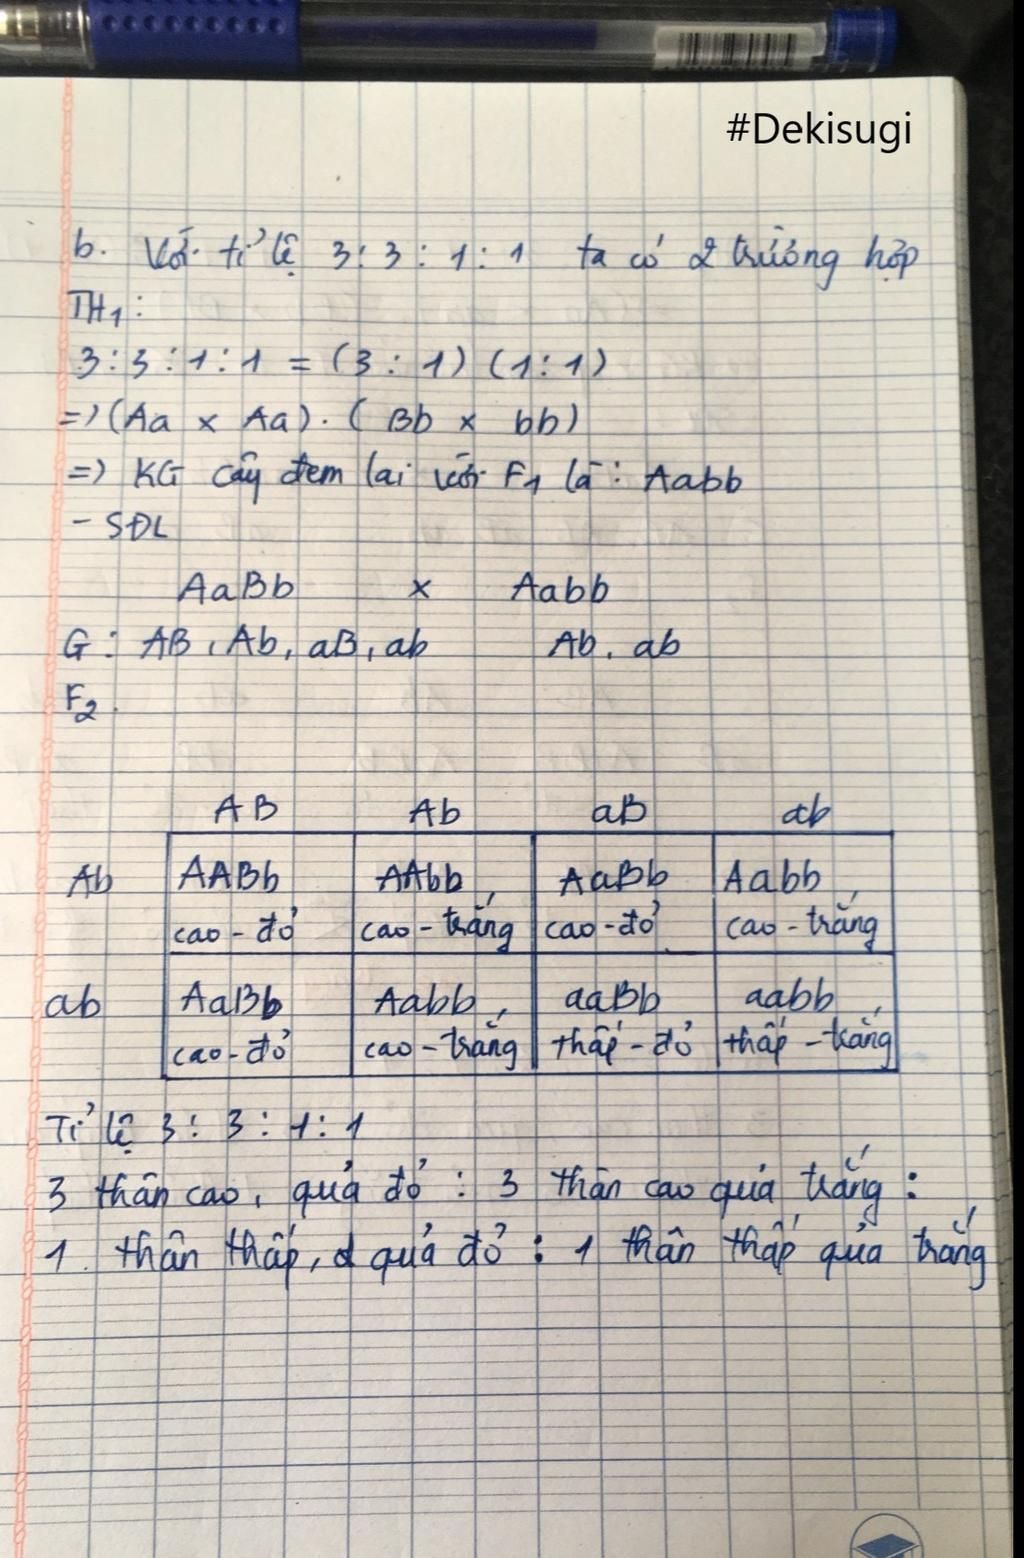 #Dekisugi
b. Với tỉ lệ 3 : 3 : 1 : 1 ta có 2 trường hợp
TH1 :
3 : 3 : 1 : 1 = (3 : 1) (1 : 1)
=> (Aa x Aa) . ( Bb x bb)
=> KG cây đem lai với F1 là : Aabb
- SĐL
AaBb x Aabb
G : AB, Ab, aB, ab Ab, ab
F2
AB Ab aB ab
Ab AABb AAbb AaBb Aabb
cao - đỏ cao - trắng cao - đỏ cao - trắng
ab AaBb Aabb aaBb aabb
cao - đỏ cao - trắng thấp - đỏ thấp - trắng
Tỉ lệ 3 : 3 : 1 : 1
3 thân cao, quả đỏ : 3 thân cao quả trắng :
1 thân thấp, quả đỏ : 1 thân thấp quả trắng